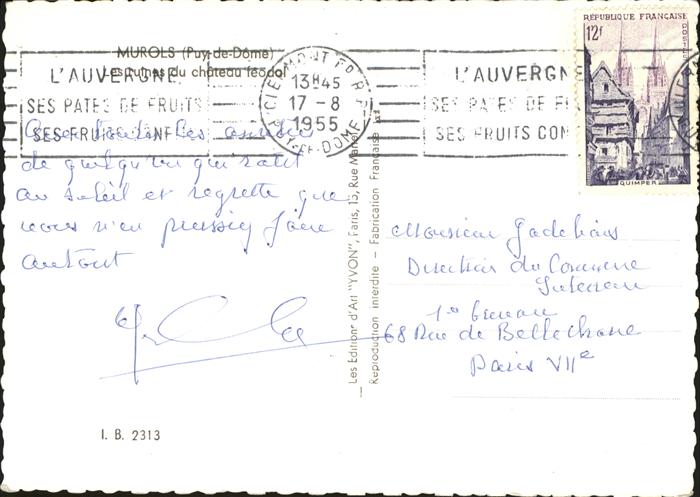 MUROLS (Puy-de-Dôme)
Les ruines du château féodal
L'AUVERGNE
SES PATES DE FRUITS
SES FRUITS CONF
CLERMONT FD R.P.
13H45
17 - 8
1955
PUY-DE-DOME
L'AUVERGNE
SES PATES DE F
SES FRUITS CON
RÉPUBLIQUE FRANÇAISE
12F
POSTES
QUIMPER
Avec toutes les amitiés
de quelqu'un qui rôtit
au soleil et regrette que
vous n'en puissiez faire
autant
Monsieur
Direction du Commerce
Intérieur
1er bureau
68 Rue de Bellechasse
Paris VIIe
— Les Editions d'Art "YVON", Paris, 15, Rue Martel —
Reproduction interdite - Fabrication Française
I. B. 2313